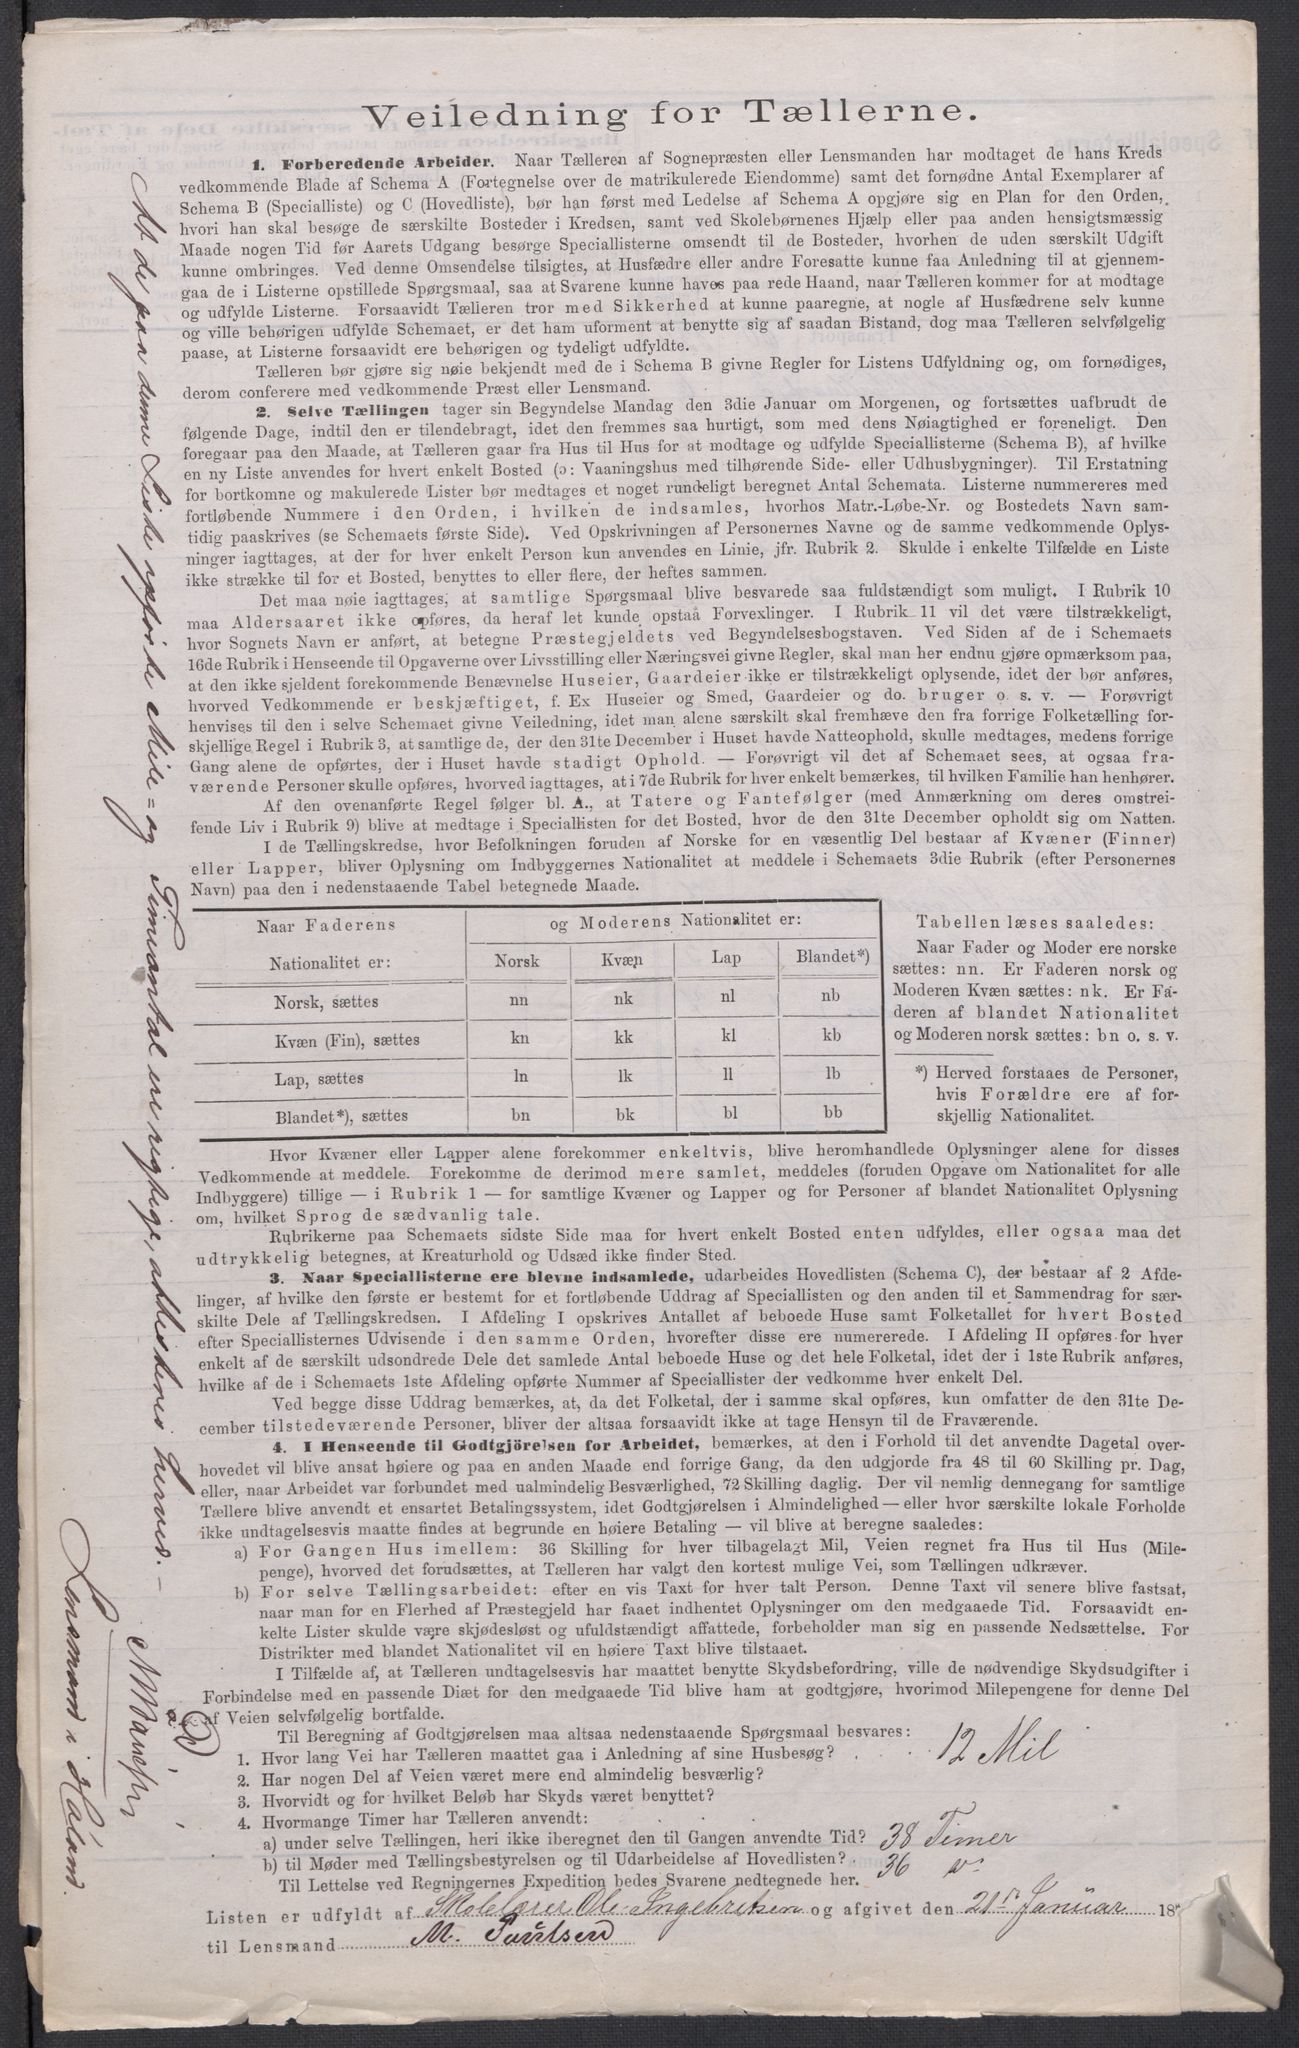 Veiledning for Tællerne.
1. Forberedende Arbeider. Naar Tælleren af Sognepræsten eller Lensmanden har modtaget de hans Kreds
vedkommende Blade af Schema A (Fortegnelse over de matrikulerede Eiendomme) samt det fornødne Antal Exemplarer af
Schema B (Specialliste) og C (Hovedliste), bør han først med Ledelse af Schema A opgjøre sig en Plan for den Orden,
hvori han skal besøge de særskilte Bosteder i Kredsen, samt ved Skolebørnenes Hjælp eller paa anden hensigtsmæssig
Maade nogen Tid før Aarets Udgang besørge Speciallisterne omsendt til de Bosteder, hvorhen de uden særskilt Udgift
kunne ombringes. Ved denne Omsendelse tilsigtes, at Husfædre eller andre Foresatte kunne faa Anledning til at gjennem-
gaa de i Listerne opstillede Spørgsmaal, saa at Svarene kunne haves paa rede Haand, naar Tælleren kommer for at modtage
og udfylde Listerne. Forsaavidt Tælleren tror med Sikkerhed at kunne paaregne, at nogle af Husfædrene selv kunne
og ville behørigen udfylde Schemaet, er det ham uforment at benytte sig af saadan Bistand, dog maa Tælleren selvfølgelig
paase, at Listerne forsaavidt ere behørigen og tydeligt udfyldte.
Tælleren bør gjøre sig nøie bekjendt med de i Schema B givne Regler for Listens Udfyldning og, om fornødiges,
derom conferere med vedkommende Præst eller Lensmand.
2. Selve Tællingen tager sin Begyndelse Mandag den 3die Januar om Morgenen, og fortsættes uafbrudt de
følgende Dage, indtil den er tilendebragt, idet den fremmes saa hurtigt, som med dens Nøiagtighed er foreneligt. Den
foregaar paa den Maade, at Tælleren gaar fra Hus til Hus for at modtage og udfylde Speciallisterne (Schema B), af hvilke
en ny Liste anvendes for hvert enkelt Bosted (ɔ: Vaaningshus med tilhørende Side- eller Udhusbygninger). Til Erstatning
for bortkomne og makulerede Lister bør medtages et noget rundeligt beregnet Antal Schemata. Listerne nummereres med
fortløbende Nummere i den Orden, i hvilken de indsamles, hvorhos Matr.-Løbe-Nr. og Bostedets Navn sam-
tidig paaskrives (se Schemaets første Side). Ved Opskrivningen af Personernes Navne og de samme vedkommende Oplys-
ninger iagttages, at der for hver enkelt Person kun anvendes en Linie, jfr. Rubrik 2. Skulde i enkelte Tilfælde en Liste
ikke strække til for et Bosted, benyttes to eller flere, der heftes sammen.
Det maa nøie iagttages, at samtlige Spørgsmaal blive besvarede saa fuldstændigt som muligt. I Rubrik 10
maa Aldersaaret ikke opføres, da heraf let kunde opstaa Forvexlinger. I Rubrik 11 vil det være tilstrækkeligt,
hvor Sognets Navn er anført, at betegne Præstegjeldets ved Begyndelsesbogstaven. Ved Siden af de i Schemaets
16de Rubrik i Henseende til Opgaverne over Livsstilling eller Næringsvei givne Regler, skal man her endnu gjøre opmærksom paa,
at den ikke sjeldent forekommende Benævnelse Huseier, Gaardeier ikke er tilstrækkeligt oplysende, idet der bør anføres,
hvorved Vedkommende er beskjæftiget, f. Ex Huseier og Smed, Gaardeier og do. bruger o. s. v. — Forøvrigt
henvises til den i selve Schemaet givne Veiledning, idet man alene særskilt skal fremhæve den fra forrige Folketælling for-
skjellige Regel i Rubrik 3, at samtlige de, der den 31te December i Huset havde Natteophold, skulle medtages, medens forrige
Gang alene de opførtes, der i Huset havde stadigt Ophold. — Forøvrigt vil det af Schemaet sees, at ogsaa fra-
værende Personer skulle opføres, hvorved iagttages, at i 7de Rubrik for hver enkelt bemærkes, til hvilken Familie han henhører.
Af den ovenanførte Regel følger bl. A., at Tatere og Fantefølger (med Anmærkning om deres omstrei-
fende Liv i Rubrik 9) blive at medtage i Speciallisten for det Bosted, hvor de den 31te December opholdt sig om Natten.
I de Tællingskredse, hvor Befolkningen foruden af Norske for en væsentlig Del bestaar af Kvæner (Finner)
eller Lapper, bliver Oplysning om Indbyggernes Nationalitet at meddele i Schemaets 3die Rubrik (efter Personernes
Navn) paa den i nedenstaaende Tabel betegnede Maade.
Naar Faderens og Moderens Nationalitet er:
Nationalitet er: Norsk Kvæn Lap Blandet*)
Norsk, sættes nn nk nl nb
Kvæn (Fin), sættes kn kk kl kb
Lap, sættes ln lk ll lb
Blandet*), sættes bn bk bl bb
Tabellen læses saaledes:
Naar Fader og Moder ere norske
sættes: nn. Er Faderen norsk og
Moderen Kvæn sættes: nk. Er Fa-
deren af blandet Nationalitet
og Moderen norsk sættes: bn o. s. v.
*) Herved forstaaes de Personer,
hvis Forældre ere af for-
skjellig Nationalitet.
Hvor Kvæner eller Lapper alene forekommer enkeltvis, blive heromhandlede Oplysninger alene for disses
Vedkommende at meddele. Forekomme de derimod mere samlet, meddeles (foruden Opgave om Nationalitet for alle
Indbyggere) tillige — i Rubrik 1 — for samtlige Kvæner og Lapper og for Personer af blandet Nationalitet Oplysning
om, hvilket Sprog de sædvanlig tale.
Rubrikerne paa Schemaets sidste Side maa for hvert enkelt Bosted enten udfyldes, eller ogsaa maa det
udtrykkelig betegnes, at Kreaturhold og Udsæd ikke finder Sted.
3. Naar Speciallisterne ere blevne indsamlede, udarbeides Hovedlisten (Schema C), der bestaar af 2 Afde-
linger, af hvilke den første er bestemt for et fortløbende Uddrag af Speciallisten og den anden til et Sammendrag for sær-
skilte Dele af Tællingskredsen. I Afdeling I opskrives Antallet af beboede Huse samt Folketallet for hvert Bosted
efter Speciallisternes Udvisende i den samme Orden, hvorefter disse ere numererede. I Afdeling II opføres for hver
enkelt af de særskilt udsondrede Dele det samlede Antal beboede Huse og det hele Folketal, idet der i 1ste Rubrik anføres,
hvilke af de i Schemaets 1ste Afdeling opførte Nummer af Speciallister der vedkomme hver enkelt Del.
Ved begge disse Uddrag bemærkes, at, da det Folketal, der i samme skal opføres, kun omfatter de den 31te De-
cember tilstedeværende Personer, bliver der altsaa forsaavidt ikke at tage Hensyn til de Fraværende.
4. I Henseende til Godtgjörelsen for Arbeidet, bemærkes, at den i Forhold til det anvendte Dagetal over-
hovedet vil blive ansat høiere og paa en anden Maade end forrige Gang, da den udgjorde fra 48 til 60 Skilling pr. Dag,
eller, naar Arbeidet var forbundet med ualmindelig Besværlighed, 72 Skilling daglig. Der vil nemlig dennegang for samtlige
Tællere blive anvendt et ensartet Betalingssystem, idet Godtgjørelsen i Almindelighed — eller hvor særskilte lokale Forholde
ikke undtagelsesvis maatte findes at begrunde en høiere Betaling — vil blive at beregne saaledes:
a) For Gangen Hus imellem: 36 Skilling for hver tilbagelagt Mil, Veien regnet fra Hus til Hus (Mile-
penge), hvorved det forudsættes, at Tælleren har valgt den kortest mulige Vei, som Tællingen udkræver.
b) For selve Tællingsarbeidet: efter en vis Taxt for hver talt Person. Denne Taxt vil senere blive fastsat,
naar man for en Flerhed af Præstegjeld har faaet indhentet Oplysninger om den medgaaede Tid. Forsaavidt en-
kelte Lister skulde være skjødesløst og ufuldstændigt affattede, forbeholder man sig en passende Nedsættelse. For
Distrikter med blandet Nationalitet vil en høiere Taxt blive tilstaaet.
I Tilfælde af, at Tælleren undtagelsesvis har maattet benytte Skydsbefordring, ville de nødvendige Skydsudgifter i
Forbindelse med en passende Diæt for den medgaaede Tid blive ham at godtgjøre, hvorimod Milepengene for denne Del
af Veien selvfølgelig bortfalde.
Til Beregning af Godtgjørelsen maa altsaa nedenstaaende Spørgsmaal besvares:
1. Hvor lang Vei har Tælleren maattet gaa i Anledning af sine Husbesøg? 12 Mil
2. Har nogen Del af Veien været mere end almindelig besværlig?
3. Hvorvidt og for hvilket Beløb har Skyds været benyttet?
4. Hvormange Timer har Tælleren anvendt:
a) under selve Tællingen, heri ikke iberegnet den til Gangen anvendte Tid? 38 Timer
b) til Møder med Tællingsbestyrelsen og til Udarbeidelse af Hovedlisten? 36
Til Lettelse ved Regningernes Expedition bedes Svarene nedtegnede her.
Listen er udfyldt af Skolelærer Ole Ingebretsen og afgivet den 21de Januar 18
til Lensmand M. Paulsen
At de paa denne Liste opførte Mile- og Timeantal ere rigtige, attesteres herved. —
Lensmand i